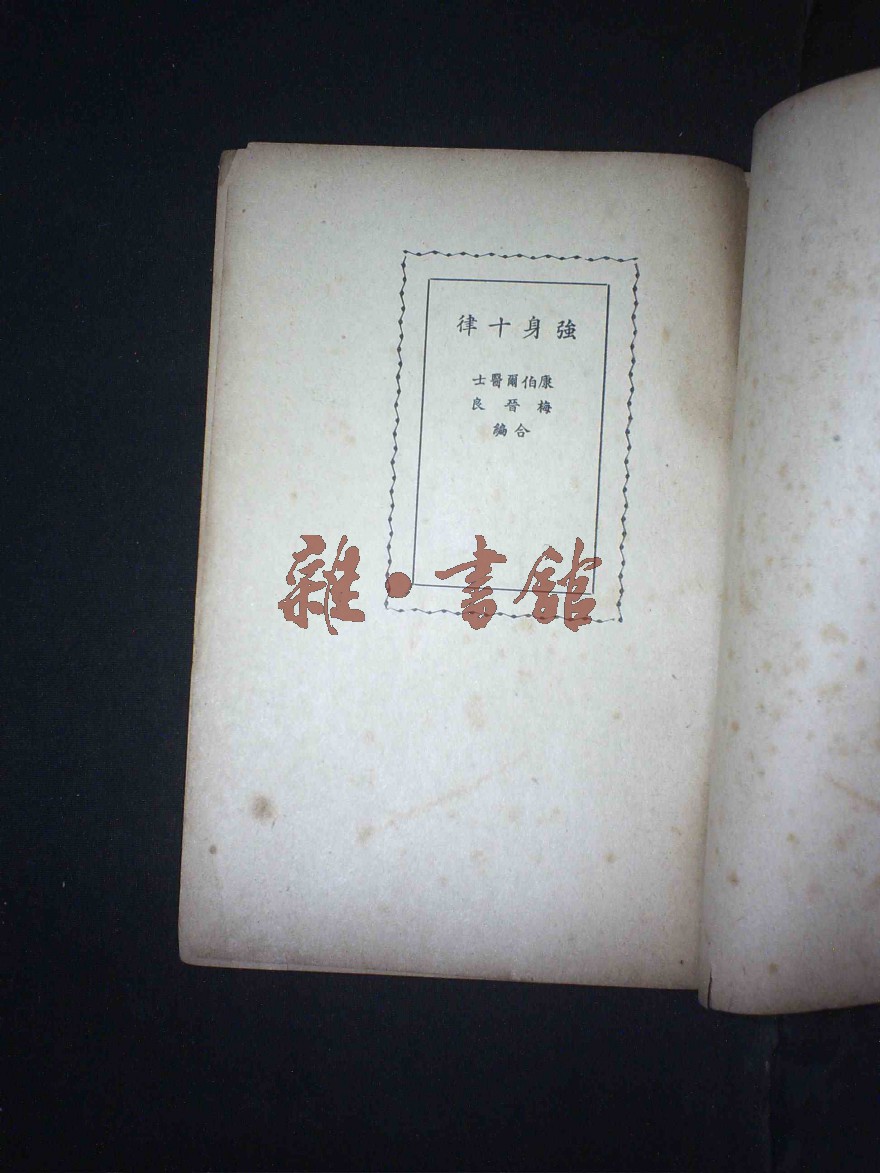 強身十律
康伯爾醫士
梅晉良
合編
雜·書館